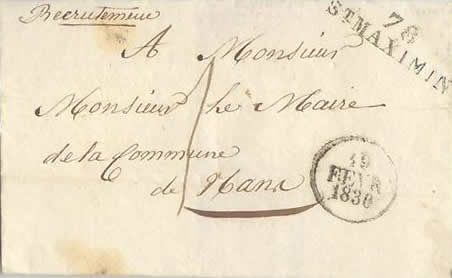 Recrutement
78
ST MAXIMIN
A Monsieur
Monsieur Le Maire
de la Commune
de Nans
19
FEVR
1830